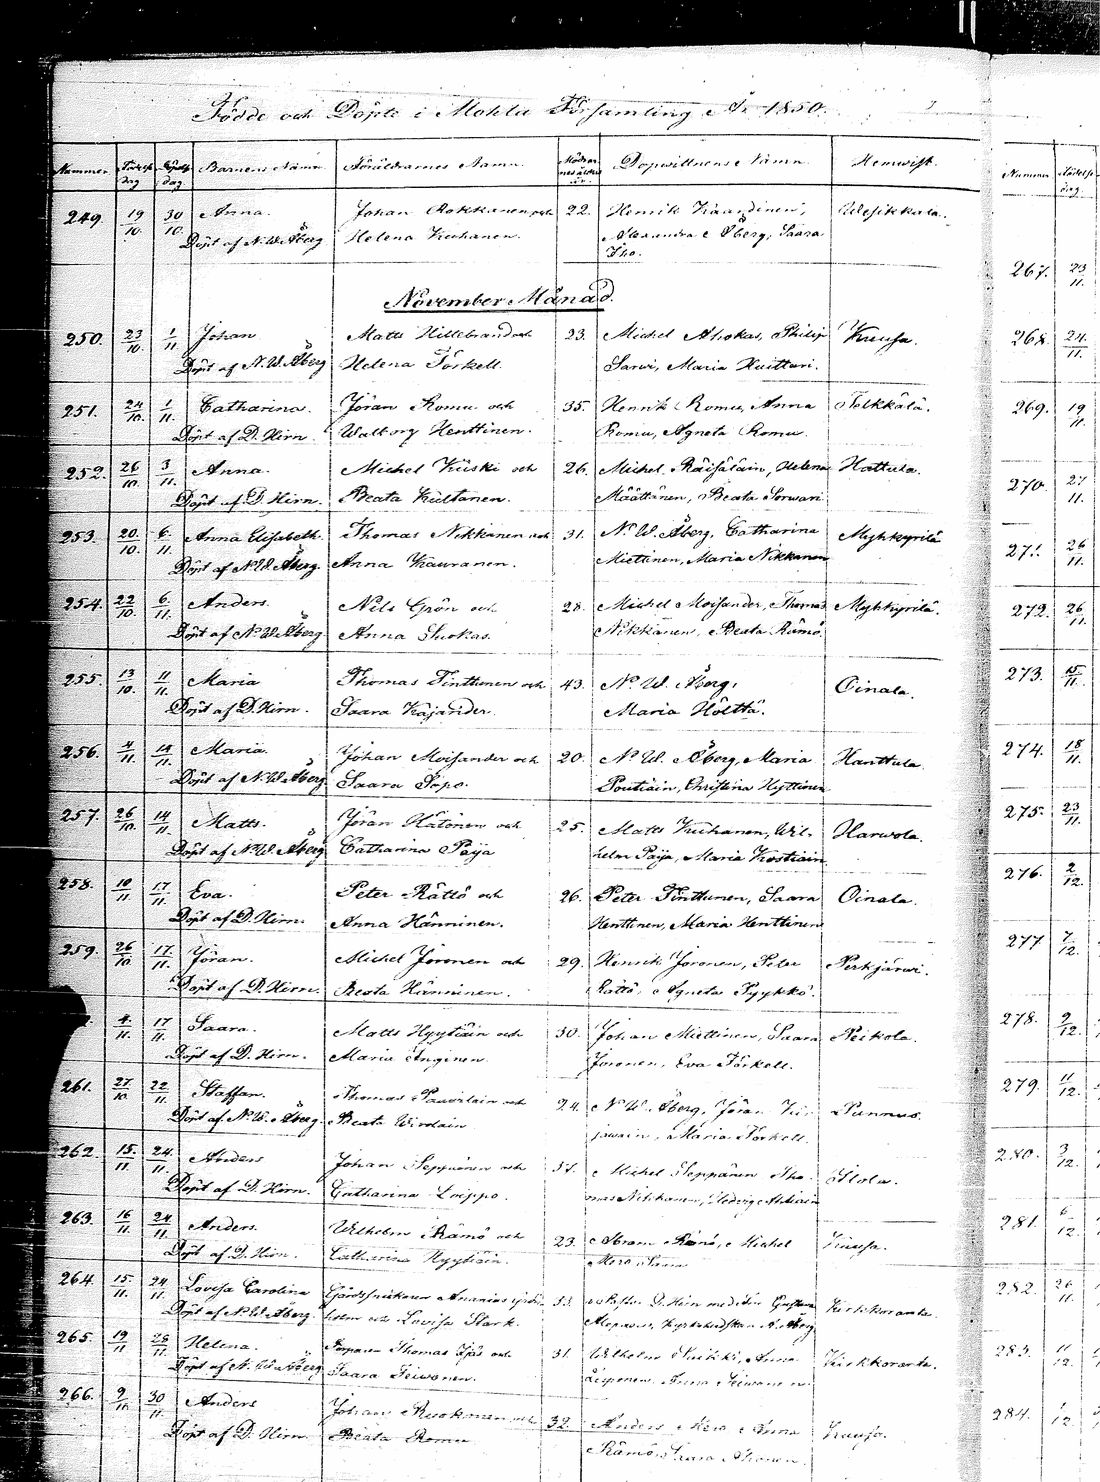 Födde och Döpte i Mohla Församling År 1850.
Nummer Födelse dag Döpelse dag Barnens Namn Föräldrarnes Namn Modrens ålder Dopwittnens Namn Hemwist
249. 19/10. 30/10. Anna. Johan Rokkanen och 22. Henrik Kaardinen, Wesikkala.
Döpt af N. W. Åberg Helena Kuhanen. Alexandra Åberg, Saara
Iho.
November Månad.
250. 23/10. 1/11 Johan Matts Hillebrand och 23. Michel Ahokas, Philip Kuusa.
Döpt af N. W. Åberg Helena Torkell. Sarwi, Maria Huittari.
251. 24/10. 1/11. Catharina. Jöran Romu och 35. Henrik Romu, Anna Telkkälä.
Döpt af D. Hirn. Walborg Henttinen. Romu, Agneta Romu.
252. 26/10. 3/11 Anna. Michel Kiiski och 26. Michel Räisäläin, Helena Hattula.
Döpt af D. Hirn. Beata Kultanen. Määttänen, Beata Sorwari
253. 20/10. 6/11. Anna Elisabeth. Thomas Nikkanen och 31. N. W. Åberg, Catharina Myhkyrilä
Döpt af N. W. Åberg. Anna Kauranen. Miettinen, Maria Nikkanen
254. 22/10. 6/11. Anders. Nils Grön och 28. Michel Moisander, Thomas Myhkyrilä.
Döpt af N. W. Åberg Anna Suokas. Nikkänen, Beata Rämö
255. 13/10. 11/11. Maria Thomas Tinttunen och 43. N. W. Åberg, Oinala.
Döpt af D. Hirn. Saara Kajander. Maria Hölttä.
256. 4/11. 14/11. Maria. Johan Moisander och 20. N. W. Åberg, Maria Hanttula.
Döpt af N. W. Åberg Saara Pöpo. Poutiain, Christina Hyttinen
257. 26/10. 14/11. Matts. Jöran Hätönen och 25. Matts Kuhanen, Wil- Harwola.
Döpt af N. W. Åberg Catharina Paija helm Paija, Maria Kostiain
258. 10/11 17/11. Eva. Peter Rättö och 26. Peter Tinttunen, Saara Oinala.
Döpt af D. Hirn. Anna Hänninen. Henttinen, Maria Henttinen
259. 26/10 17/11. Jöran. Michel Joronen och 29. Henrik Joronen, Peter Perkjärwi.
Döpt af D. Hirn. Beata Hänninen. Rättö, Agneta Pyykkö.
4/11. 17/11. Saara. Matts Hyytiäin och 30. Johan Miettinen, Saara Peikola.
Döpt af D. Hirn. Maria Inginen. Joronen, Eva Torkell.
261. 27/10. 22/11. Staffan. Thomas Pauwilain och 24. N. W. Åberg, Jöran Punnus.
Döpt af N. W. Åberg. Beata Wirolain Maria Torkell.
262. 15/11 24/11. Anders Johan Seppänen och Michel Seppänen Tho-
Döpt af D. Hirn. Catharina Loippo. mas Nikkanen, Hedvig
263. 16/11. 24/11. Anders. Wilhelm Rämö och 23. Abram Rämö, Michel Kuusa.
Döpt af D. Hirn. Catharina Hyytiäin. Mera
264. 15/11. 24/11. Lovisa Carolina Ananias 33. D. Hirn med Kirkkoranta.
Döpt af N. W. Åberg. och Lovisa Stark. Åberg
265. 19/11 28/11. Helena. Thomas och 31. Wilhelm Anna Kirkkoranta.
Döpt af N. W. Åberg Saara Teiwonen. Anna
266. 9/11. 30/11. Anders Johan Ruokonen och 32. Anders Mera Anna Kuusa.
Döpt af D. Hirn Beata Romu Rämö, Saara
Nummer Födelse dag
267. 23/11.
268. 24/11.
269. 19/11.
270. 27/11.
271. 26/11.
272. 26/11.
273. 15/11.
274. 18/11.
275. 23/11.
276. 2/12.
277. 7/12.
278. 9/12.
279. 11/12.
280. 3/12.
281. 6/12.
282. 26/11.
283. 11/12.
284. 1/12.